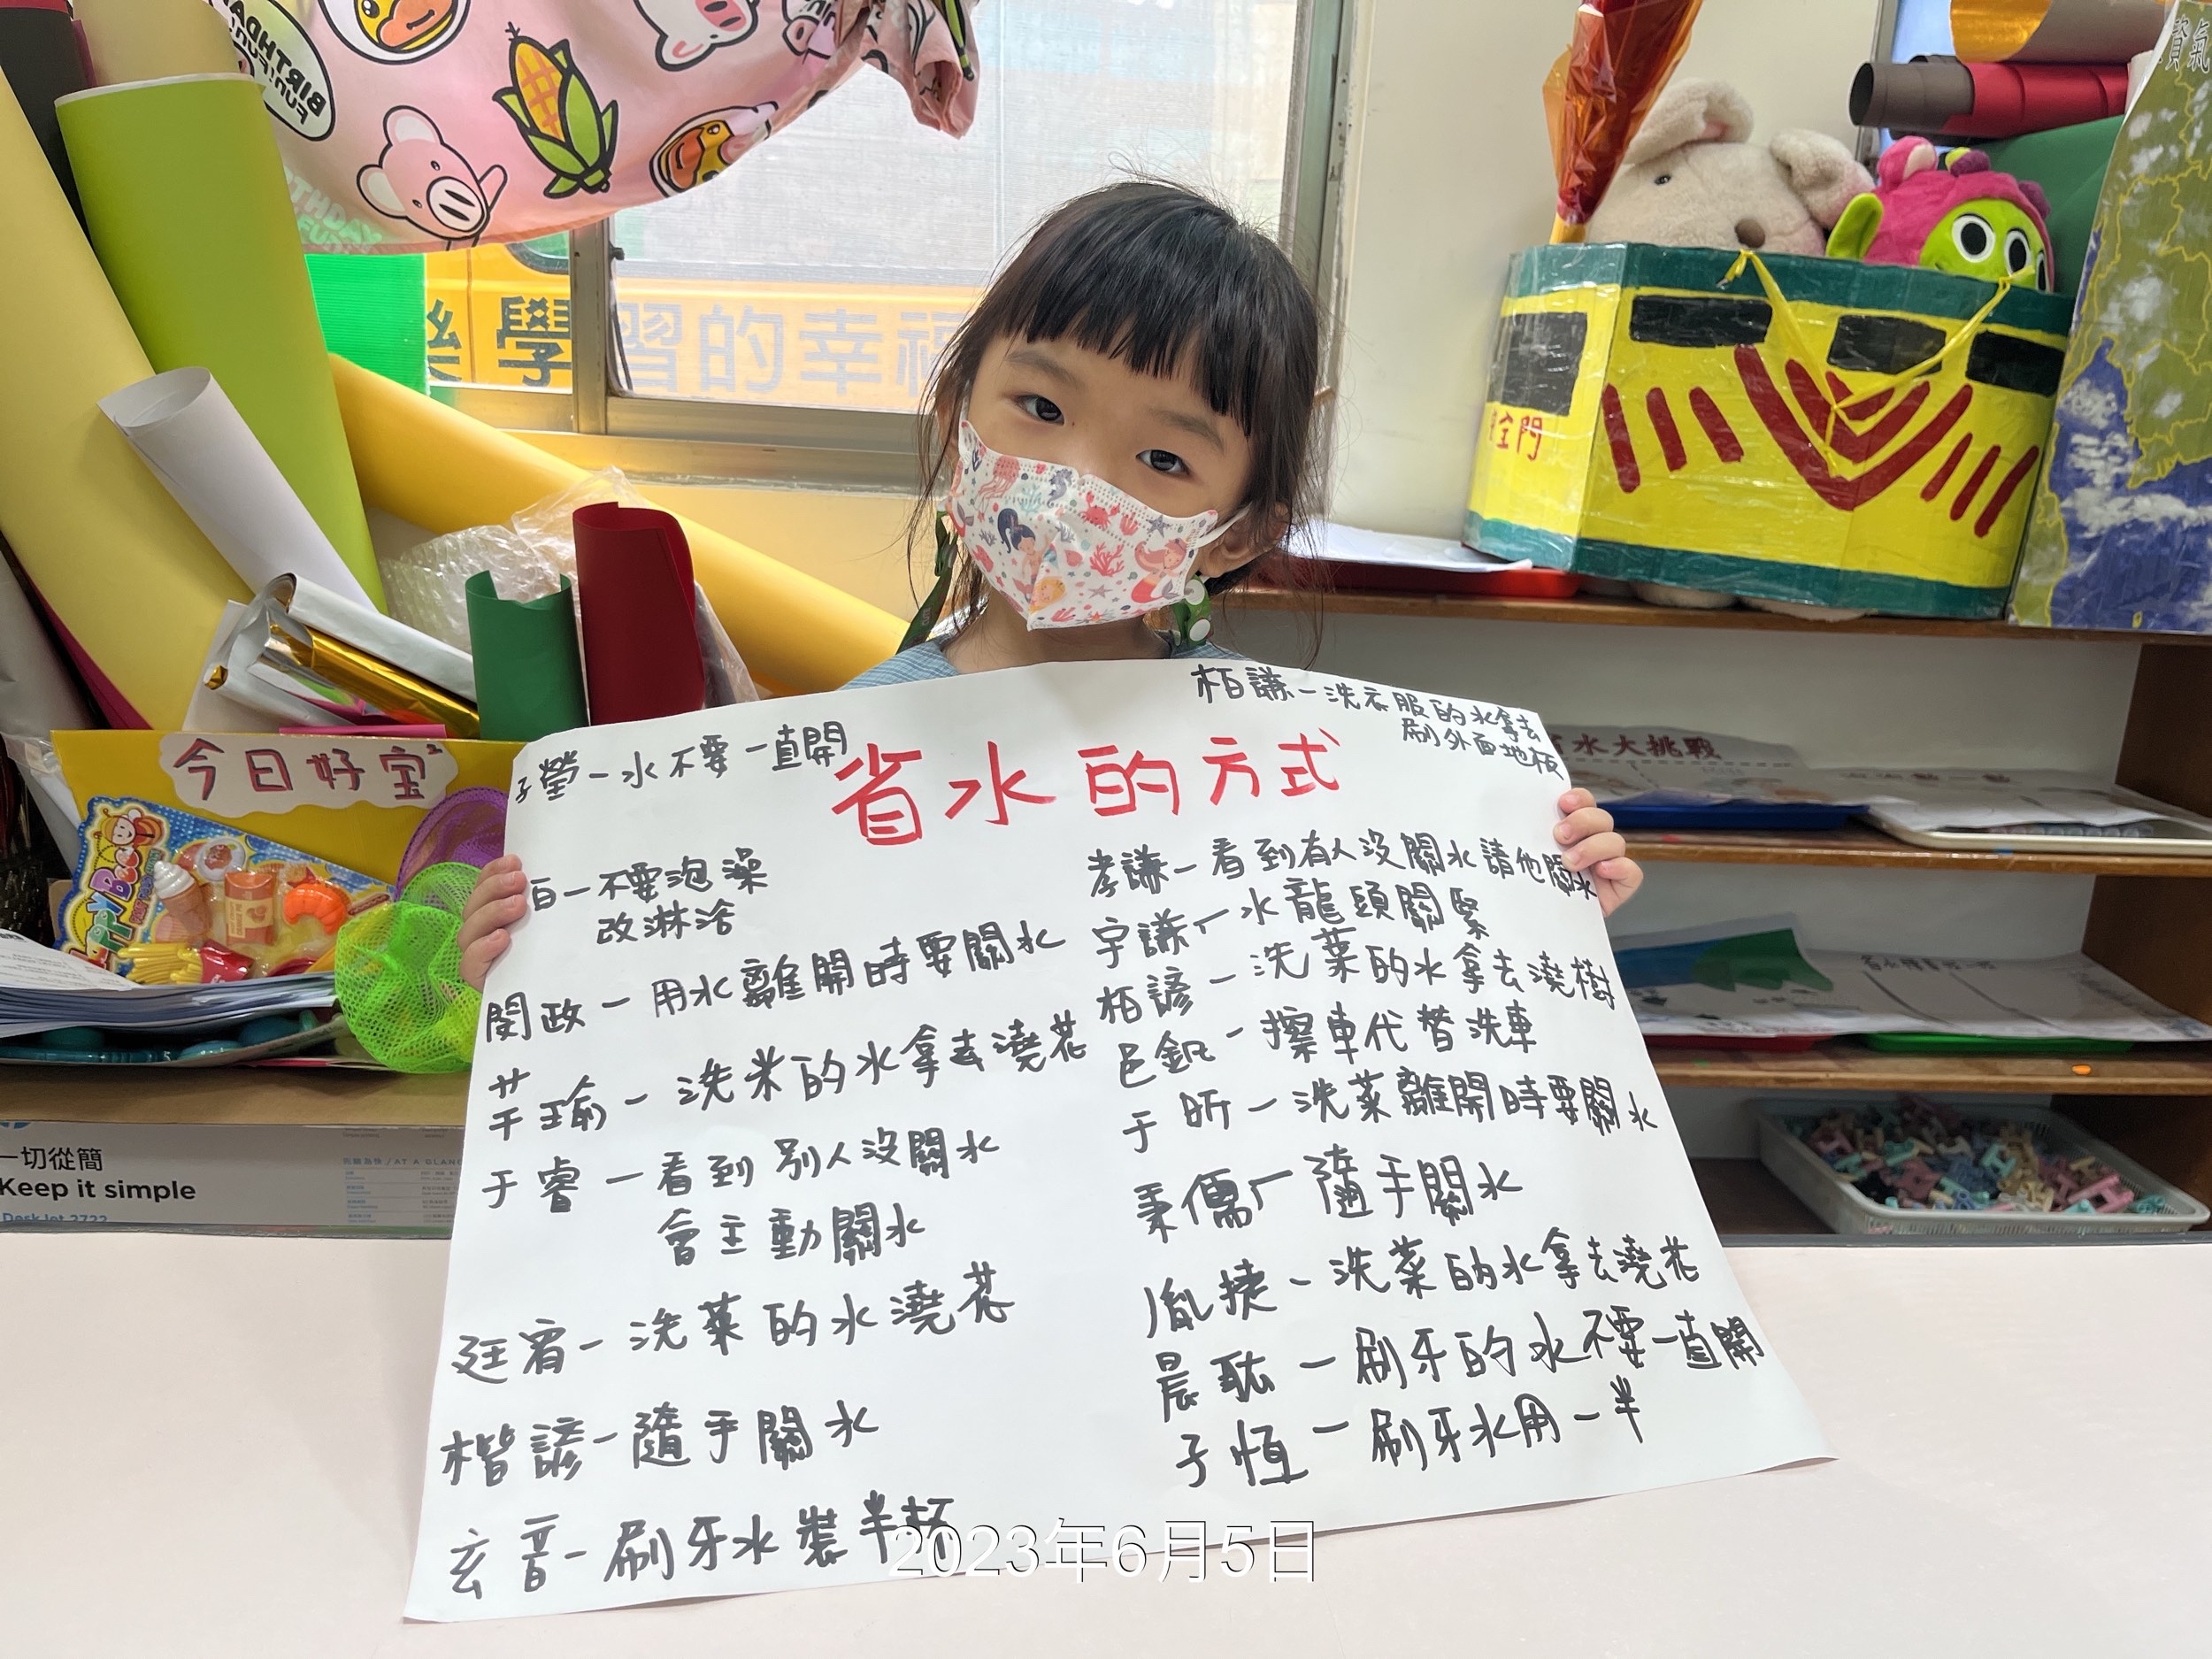 BIRTHDAY
學習的幸福
全門
今日好宝²
一切從簡
Keep it simple
DeskJet 2722
水大挑戰
柏謙-洗衣服的水拿去
刷外面地板
子瑩-水不要一直開
省水的方式
不要泡澡
改淋浴
閔政-用水離開時要關水
芊瑜-洗米的水拿去澆花
于睿-看到別人沒關水
會主動關水
廷宥-洗菜的水澆花
楷諺-隨手關水
玄音-刷牙水裝半杯
孝謙-看到有人沒關水請他關水
宇謙-水龍頭關緊
柏諺-洗菜的水拿去澆樹
邑釩-擦車代替洗車
于昕-洗菜離開時要關水
秉儒-隨手關水
胤捷-洗菜的水拿去澆花
晨耘-刷牙的水不要一直開
子恆-刷牙水用一半
2023年6月5日